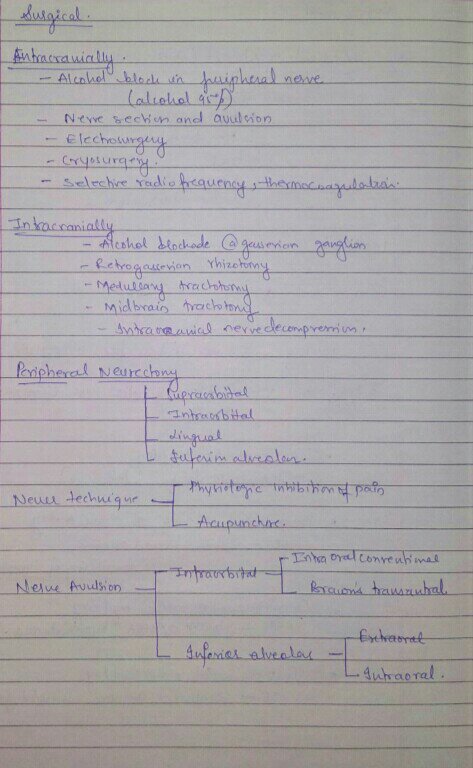 Surgical.
Intracranially.
- Alcohol block in peripheral nerve
(alcohol 95%)
- Nerve section and avulsion
- Electrosurgery
- Cryosurgery.
- Selective radiofrequency, thermocoagulation.
Intracranially
- Alcohol blockade @ gasserian ganglion
- Retrogasserian rhizotomy
- Medullary tractotomy
- Midbrain tractotomy
- Intracranial nerve decompression.
Peripheral Neurectony
Supraorbital
Infraorbital
Lingual
Inferior alveolar.
Newer technique
Physiologic inhibition of pain
Acupuncture.
Nerve Avulsion
Infraorbital
Intra oral conventional
Braun's transantral.
Inferior alveolar
Extraoral
Intraoral.